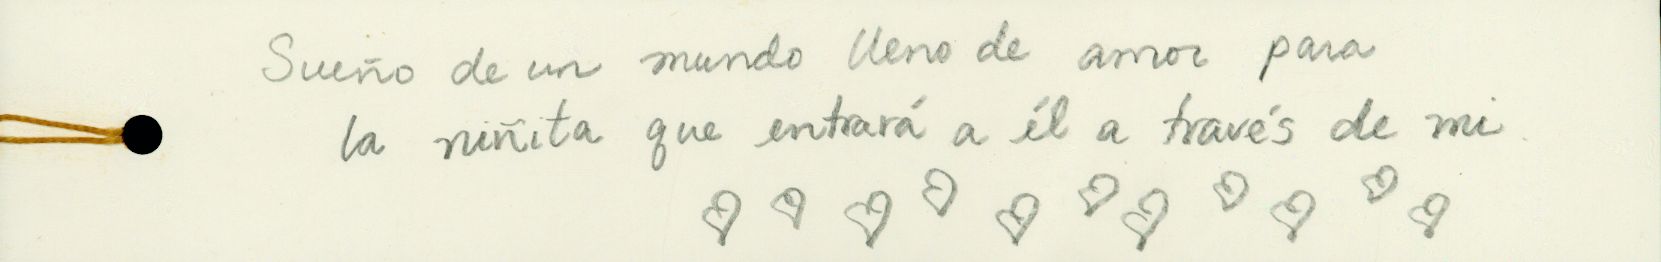 Sueño de un mundo lleno de amor para
la niñita que entrará a él a través de mi